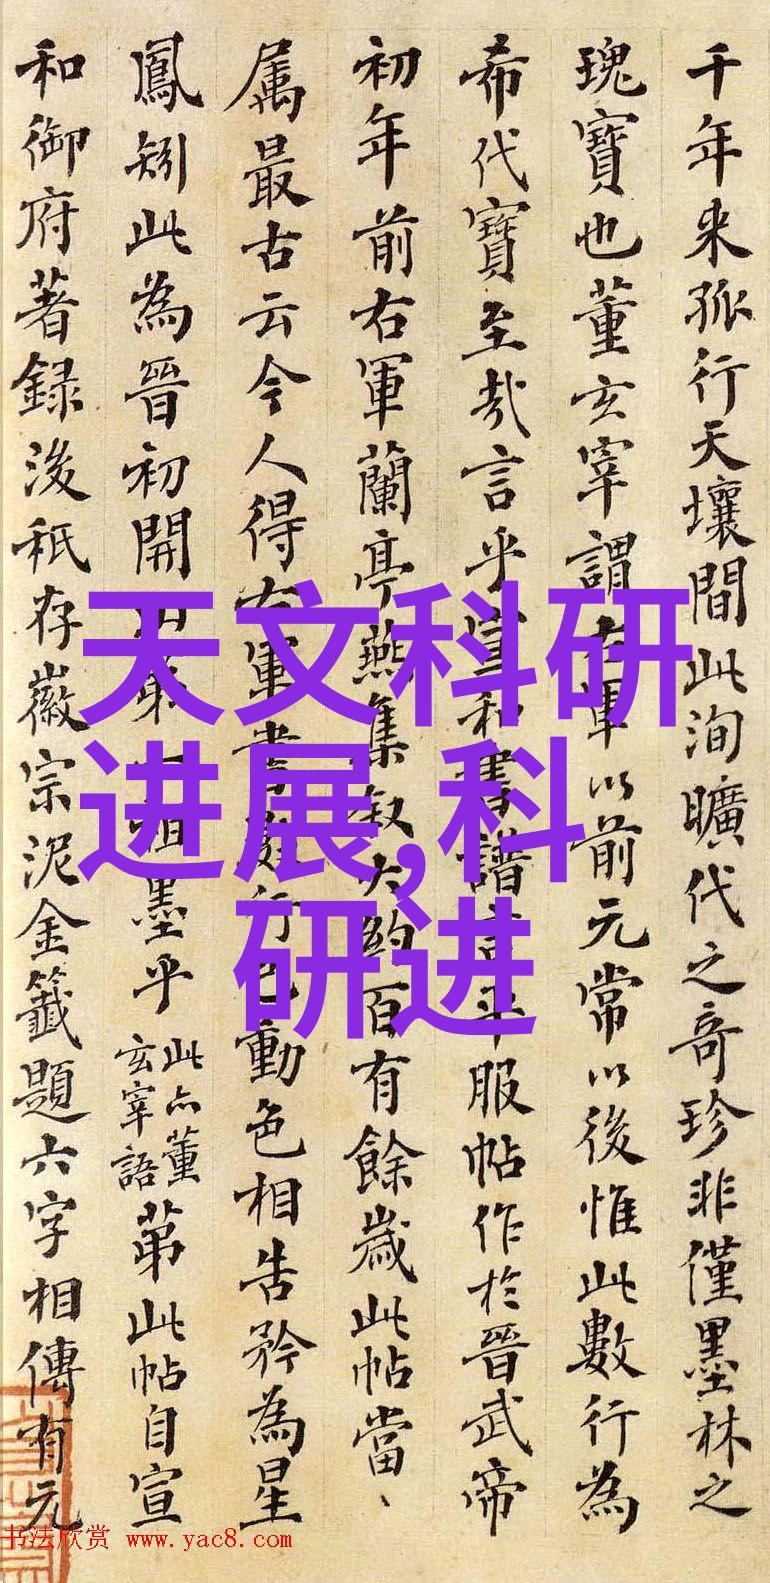 千年来孤行天壤間此洵曠代之奇珍非僅墨林之
瑰寶也董玄宰謂右軍以前元常以後惟此數行為
希代寶至哉言乎宣和書譜言平服帖作於晉武帝
初年前右軍蘭亭燕集叙大約百有餘歲此帖當丶
属最古云今人得右軍書數行已動色相告矜為星
鳳矧此為晉初開山第一祖墨乎此亦董玄宰語苐此帖自宣
和御府著録後秖存徽宗泥金籤題六字相傳有元
天文科研
进展,科
研进
书法欣赏 www.yac8.com